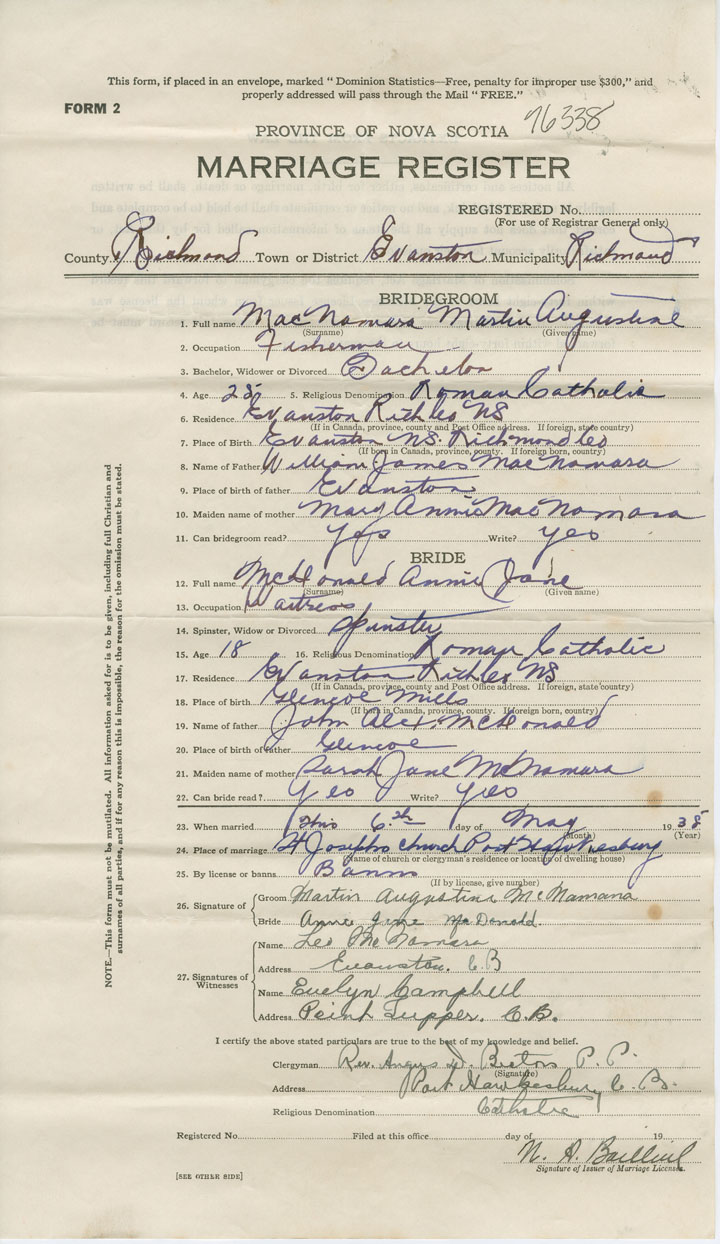 This form, if placed in an envelope, marked " Dominion Statistics—Free, penalty for improper use $300," and
properly addressed will pass through the Mail " FREE."
FORM 2
PROVINCE OF NOVA SCOTIA 76338
MARRIAGE REGISTER
REGISTERED No.
(For use of Registrar General only)
County Richmond Town or District Evanston Municipality Richmond
BRIDEGROOM
1. Full name MacNamara Martin Augustine
(Surname) (Given name)
2. Occupation Fisherman
3. Bachelor, Widower or Divorced Bachelor
4. Age 25 5. Religious Denomination Roman Catholic
6. Residence Evanston Rich Co NS
(If in Canada, province, county and Post Office address. If foreign, state country)
7. Place of Birth Evanston NS. Richmond Co
(If born in Canada, province, county. If foreign born, country)
8. Name of Father William James MacNamara
9. Place of birth of father Evanston
10. Maiden name of mother Mary Annie MacNamara
11. Can bridegroom read? Yes Write? Yes
BRIDE
12. Full name McDonald Annie Jane
(Surname) (Given name)
13. Occupation Waitress
14. Spinster, Widow or Divorced Spinster
15. Age 18 16. Religious Denomination Roman Catholic
17. Residence Evanston Rich Co NS
(If in Canada, province, county and Post Office address. If foreign, state country)
18. Place of birth Glencoe Mills
(If born in Canada, province, county. If foreign born, country)
19. Name of father John Alex. McDonald
20. Place of birth of father Glencoe
21. Maiden name of mother Sarah Jane McNamara
22. Can bride read? Yes Write? Yes
23. When married this 6th day of May 1938
(Month) (Year)
24. Place of marriage St Josephs church Port Hawkesbury
(Name of church or clergyman's residence or location of dwelling house)
25. By license or banns Banns
(If by license, give number)
26. Signature of
Groom Martin Augustine McNamara
Bride Annie Jane MacDonald.
27. Signatures of Witnesses
Name Leo McNamara
Address Evanston. C.B
Name Evelyn Campbell
Address Point Tupper. C.B.
I certify the above stated particulars are true to the best of my knowledge and belief.
Clergyman Rev. Angus D. P.P.
(Signature)
Address Port Hawkesbury C.B.
Religious Denomination Catholic
Registered No. Filed at this office day of 19
N. A.
Signature of Issuer of Marriage Licenses.
[SEE OTHER SIDE]
NOTE.—This form must not be mutilated. All information asked for is to be given, including full Christian and
surnames of all parties, and if for any reason this is impossible, the reason for the omission must be stated.